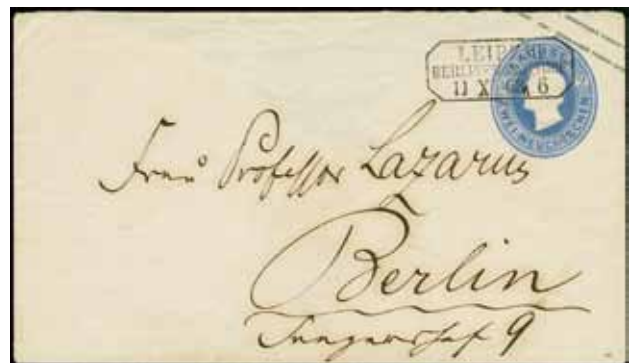 LEIPZ
BERLIN
11 X 6
ZWEI NEUGROSCHEN
Frau Professor Lazarus
Berlin
9